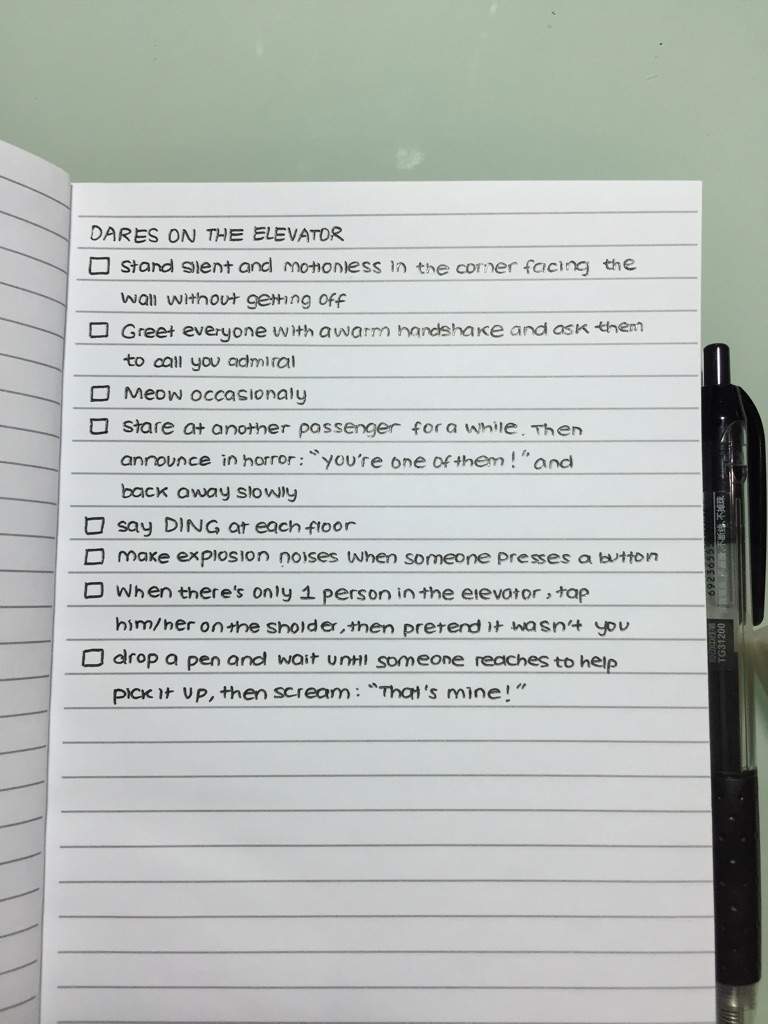 DARES ON THE ELEVATOR
Stand silent and motionless in the corner facing the
wall without getting off
Greet everyone with a warm handshake and ask them
to call you admiral
Meow occasionaly
Stare at another passenger for a while. Then
announce in horror: "you're one of them!" and
back away slowly
say DING at each floor
make explosion noises when someone presses a button
When there's only 1 person in the elevator, tap
him/her on the sholder, then pretend it wasn't you
drop a pen and wait until someone reaches to help
pick it up, then scream: "That's mine!"
TG31200